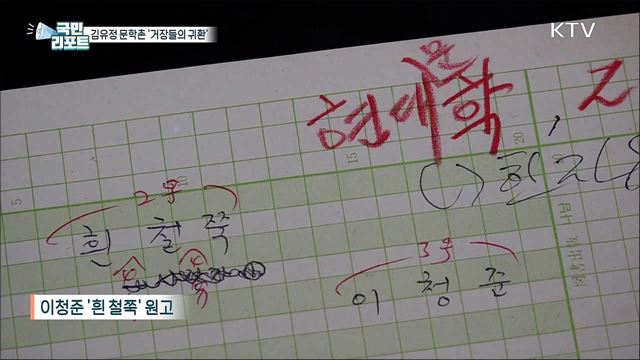 국민
리포트
김유정 문학촌 '거장들의 귀환'
KTV
현대문학, 2
5
10
15
20
2호
흰 철쭉
3호
이 청 준
이청준 '흰 철쭉' 원고